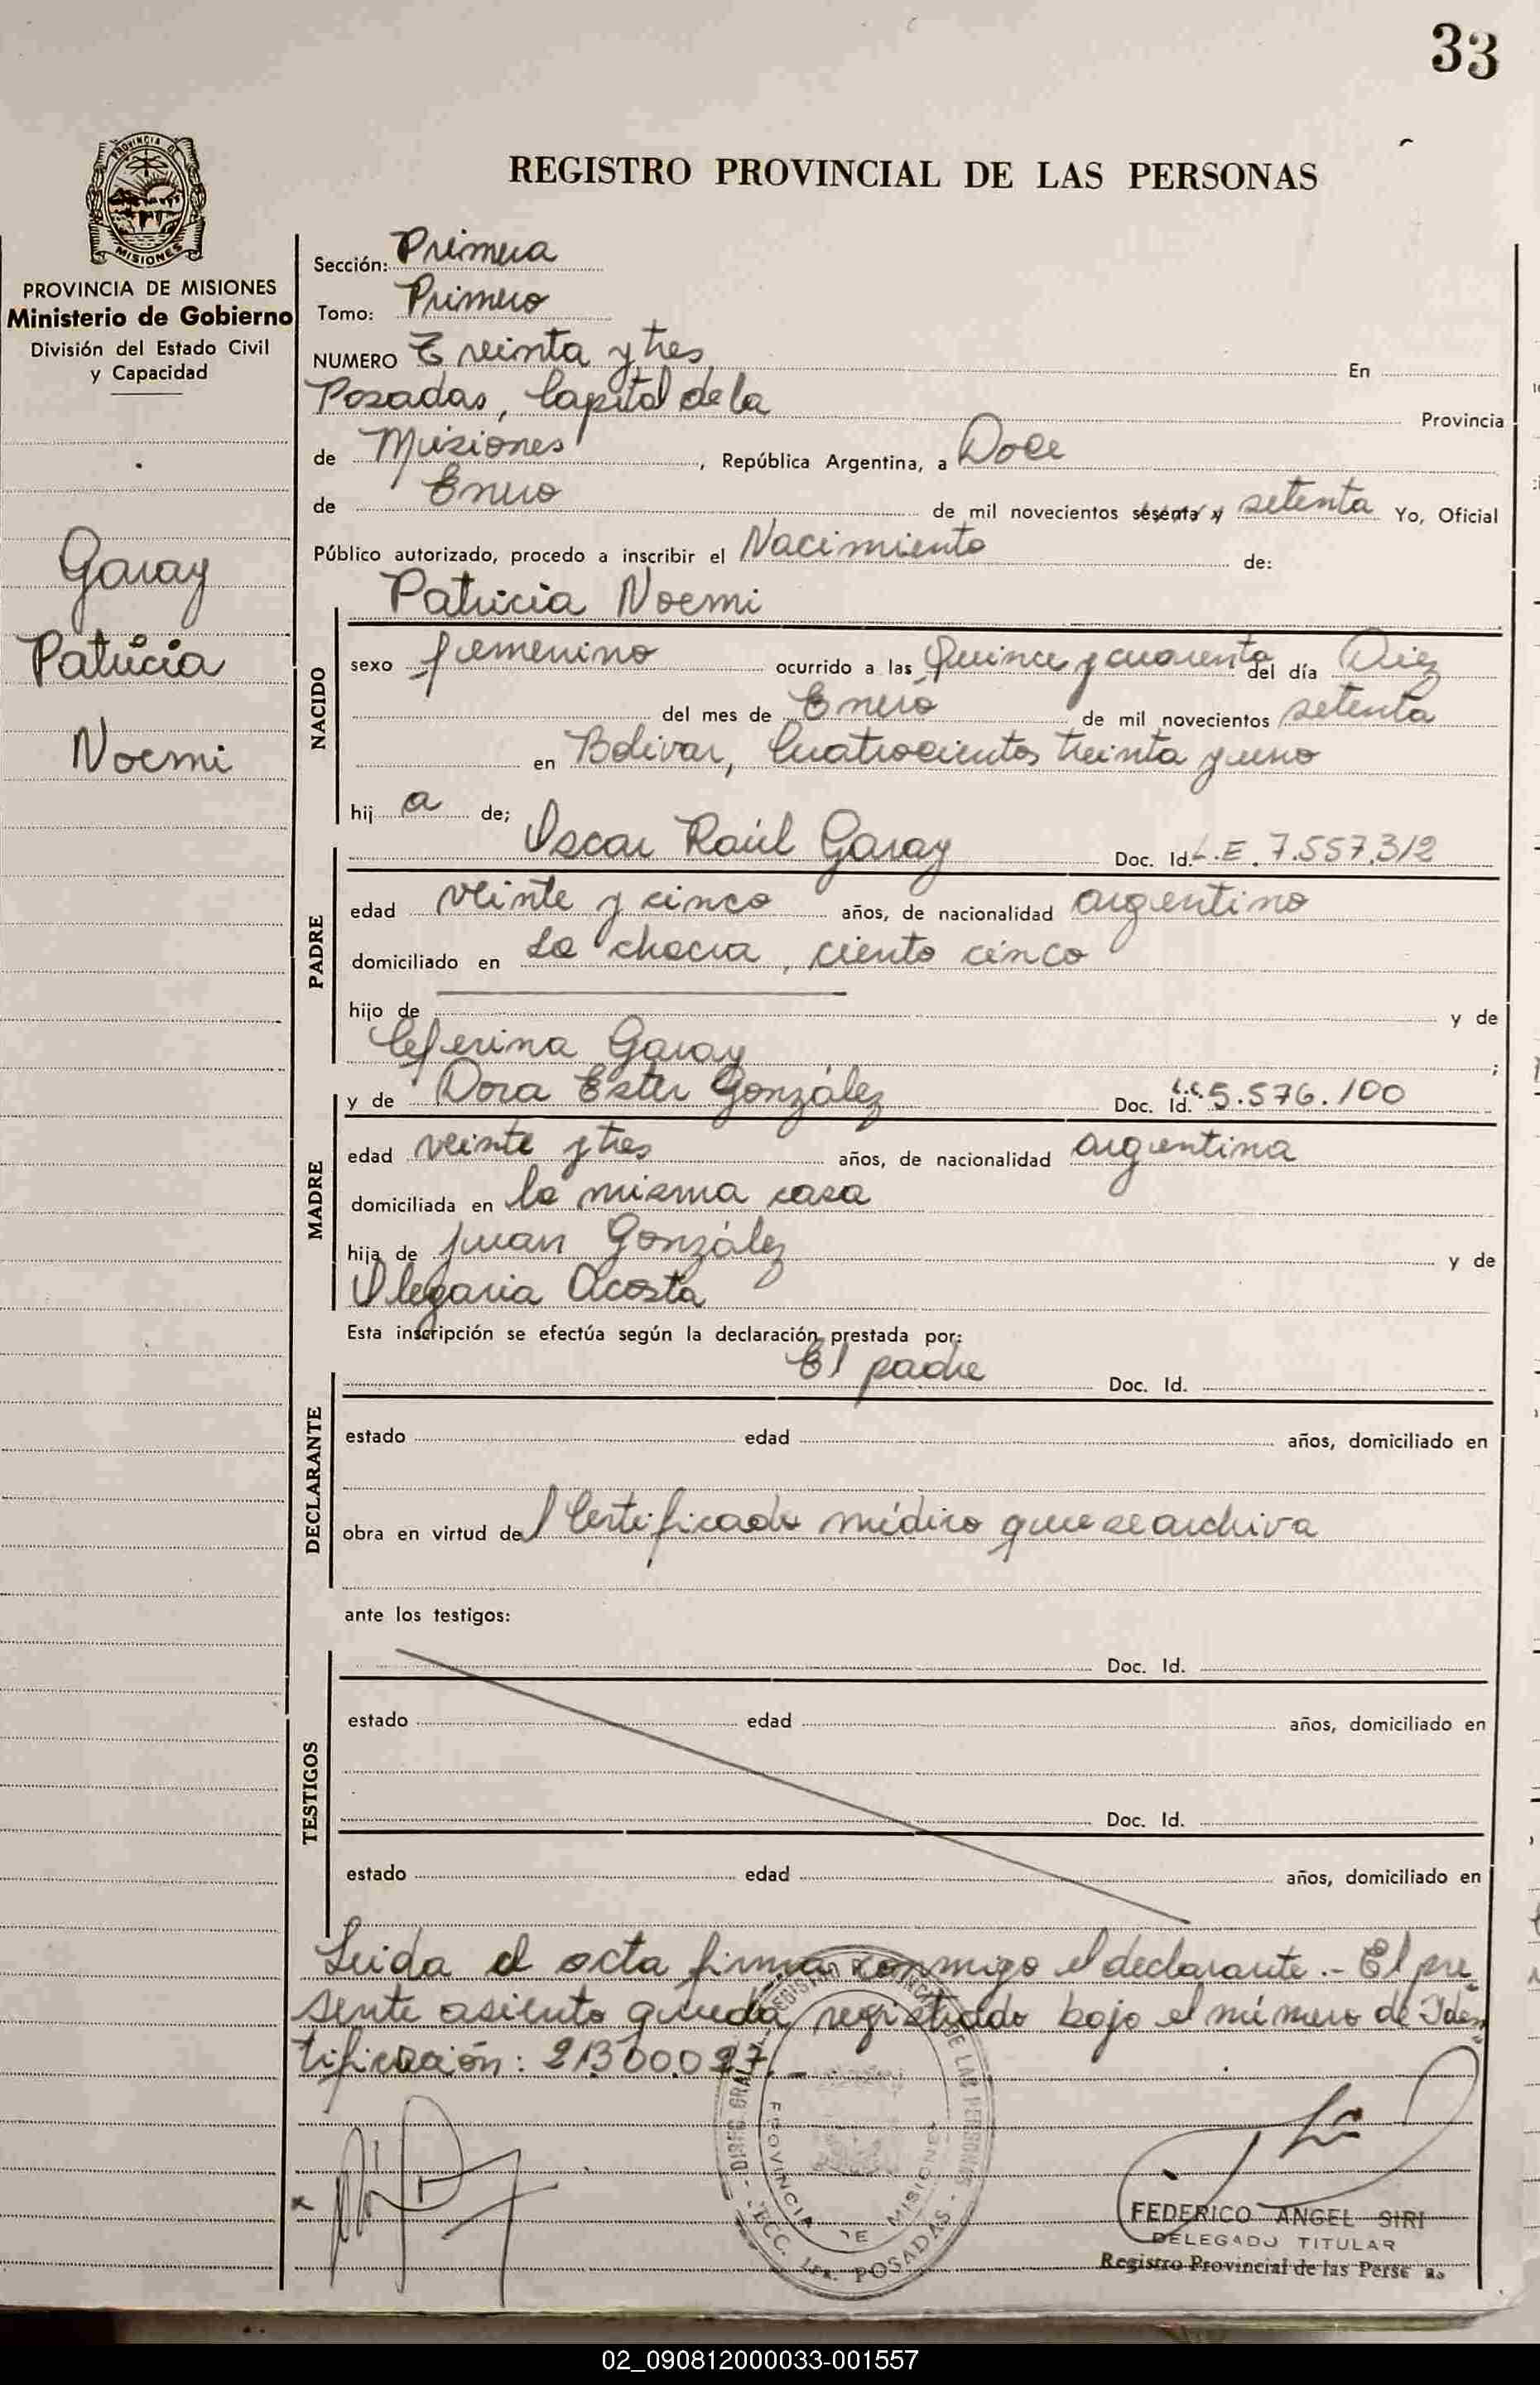 33
PROVINCIA DE
MISIONES
PROVINCIA DE MISIONES
Ministerio de Gobierno
División del Estado Civil
y Capacidad
Garay
Patricia
Noemi
REGISTRO PROVINCIAL DE LAS PERSONAS
Sección: Primera
Tomo: Primero
NUMERO Treinta y tres En
Posadas, Capital de la Provincia
de Misiones, República Argentina, a Doce
de Enero de mil novecientos sesenta y setenta Yo, Oficial
Público autorizado, procedo a inscribir el Nacimiento de:
Patricia Noemi
NACIDO
sexo femenino ocurrido a las Quince y cuarenta del día Diez
del mes de Enero de mil novecientos setenta
en Bolivar, Cuatrocientos treinta y uno
hija de;
PADRE
Oscar Raúl Garay Doc. Id. L.E. 7.557.312
edad veinte y cinco años, de nacionalidad argentino
domiciliado en La chacra, ciento cinco
hijo de y de
Ceferina Garay ;
MADRE
y de Dora Ester González Doc. Id. L.C. 5.576.100
edad veinte y tres años, de nacionalidad argentina
domiciliada en la misma casa
hija de Juan González y de
Olegaria Acosta
Esta inscripción se efectúa según la declaración prestada por:
DECLARANTE
El padre Doc. Id.
estado edad años, domiciliado en
obra en virtud del Certificado médico que se archiva
ante los testigos:
TESTIGOS
Doc. Id.
estado edad años, domiciliado en
Doc. Id.
estado edad años, domiciliado en
Leida el acta firma conmigo el declarante.- El pre-
sente asiento queda registrado bajo el número de Iden-
tificación: 21.300.027.-
DIREC. GRAL. REGISTRO PROVINCIAL DE LAS PERSONAS
SECC. 1ra. POSADAS
PROVINCIA DE MISIONES
FEDERICO ANGEL SIRI
DELEGADO TITULAR
Registro Provincial de las Personas
02_090812000033-001557